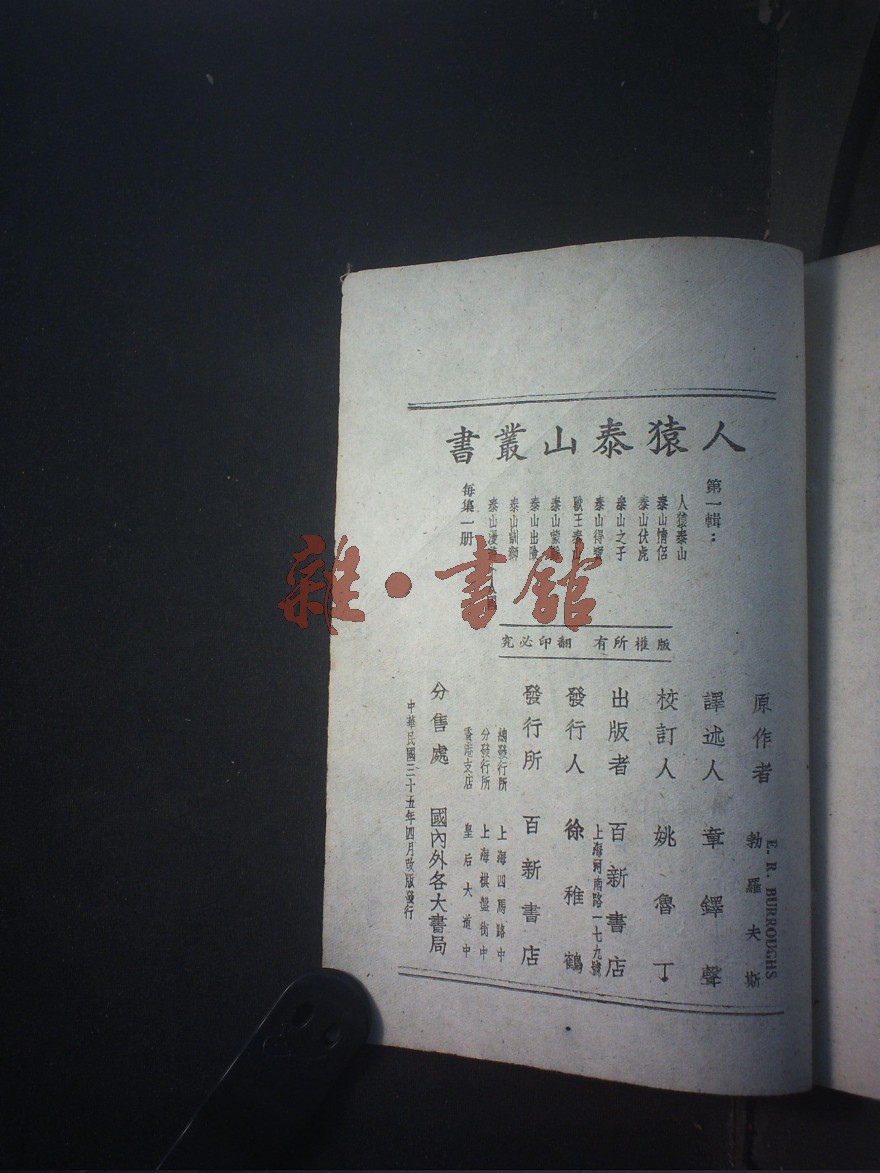 人猿泰山叢書
第一輯：
人猿泰山
泰山情侶
泰山伏虎
泰山之子
泰山得寶
獸王泰山
泰山蒙難
泰山出險
泰山馴獅
泰山漫遊
每集一册
版權所有　翻印必究
原作者　勃羅夫斯
E. R. BURROUGHS
譯述人　章鐸聲
校訂人　姚魯丁
出版者　百新書店
上海河南路一七九號
發行人　徐稚鶴
發行所　百新書店
總發行所　上海四馬路中
分發行所　上海棋盤街中
香港支店　皇后大道中
分售處　國內外各大書局
中華民國三十五年四月改版發行
雜·書館